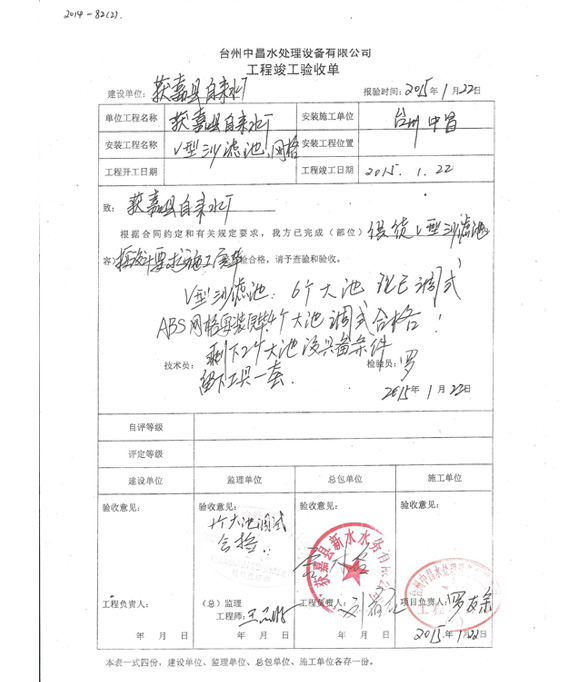 2014-82(2).
台州中昌水处理设备有限公司
工程竣工验收单
建设单位：获嘉县自来水厂
报验时间：2015年1月22日
单位工程名称 获嘉县自来水厂 安装施工单位 台州中昌
安装工程名称 V型沙滤池、网格 安装工程位置
工程开工日期 工程竣工日期 2015.1.22
致：获嘉县自来水厂
根据合同约定和有关规定要求，我方已完成（部位） V型沙滤池
容） 检合格，请予查验和验收。
V型沙滤池：6个大池 现已调式
ABS网格安装 4个大池调式合格！
剩下2个大池没具备条件
技术员： 检验员：罗
留下工具一套．
2015年1月22日
自评等级
评定等级
建设单位 监理单位 总包单位 施工单位
验收意见： 验收意见： 验收意见： 验收意见：
个大池调试
合格．
获嘉县新水水务有限公司
台州中昌水处理设备有限公司
工程负责人： （总）监理 工程负责人： 项目负责人：罗友余
工程师：
年 月 日 年 月 日 年 月 日 2015年1月22日
本表一式四份，建设单位、监理单位、总包单位、施工单位各存一份。